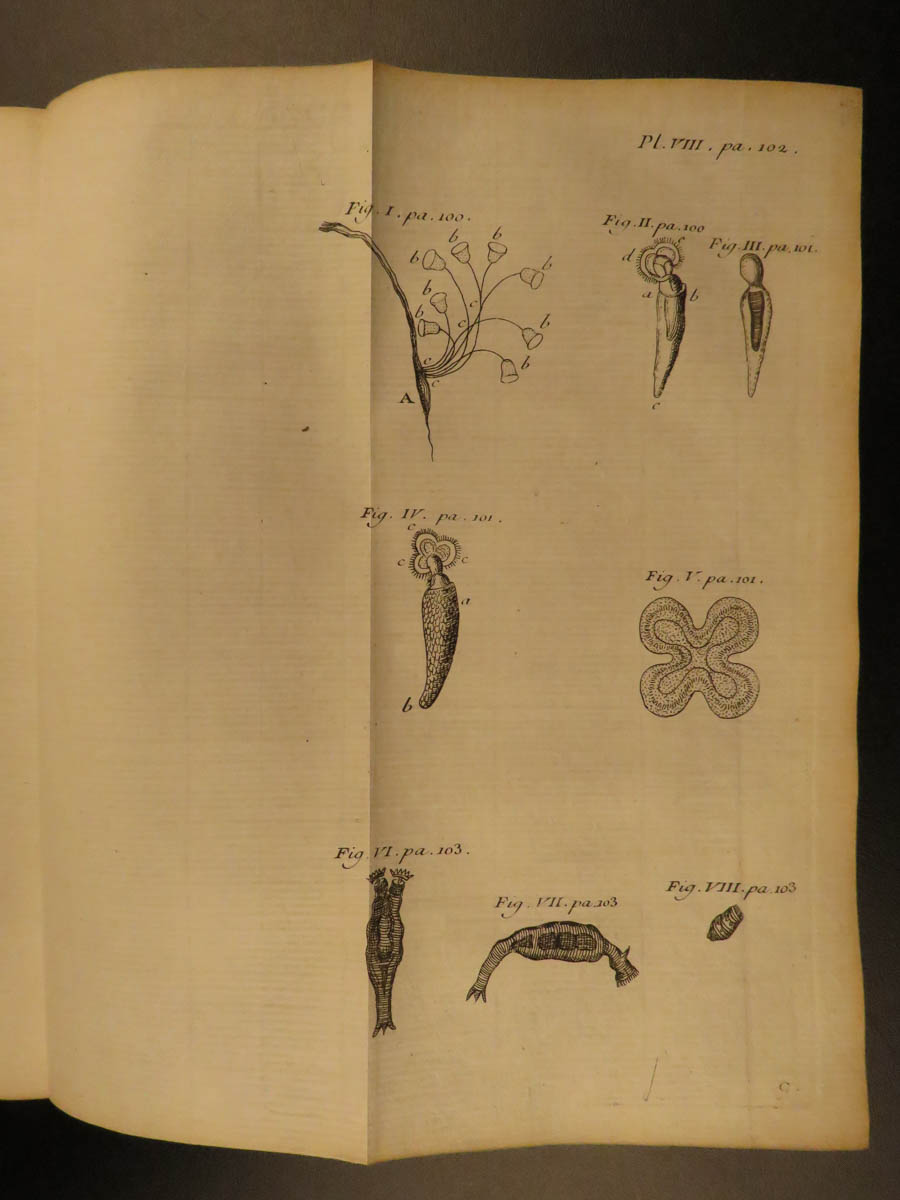 Pl. VIII. pa. 102.
Fig. I. pa. 100.
b b b b b b b b
c c c c
A
Fig. II. pa. 100
c
d
a b
c
Fig. III. pa. 101.
Fig. IV. pa. 101.
c
c c
a
b
Fig. V. pa. 101.
Fig. VI. pa. 103.
Fig. VII. pa. 103
Fig. VIII. pa. 103